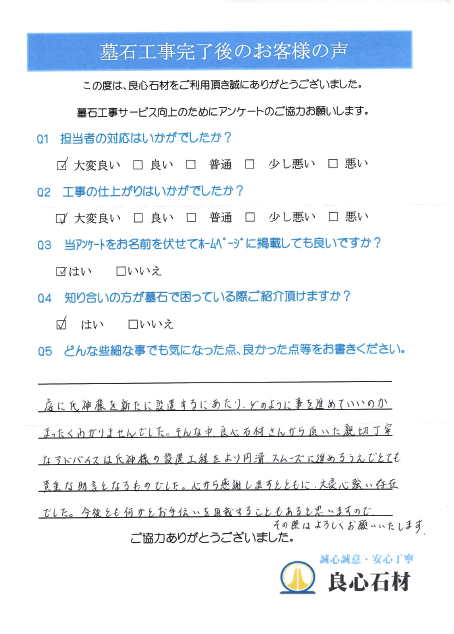 墓石工事完了後のお客様の声
この度は、良心石材をご利用頂き誠にありがとうございました。
墓石工事サービス向上のためにアンケートのご協力お願いします。
Q1 担当者の対応はいかがでしたか？
☑ 大変良い □ 良い □ 普通 □ 少し悪い □ 悪い
Q2 工事の仕上がりはいかがでしたか？
☑ 大変良い □ 良い □ 普通 □ 少し悪い □ 悪い
Q3 当ｱﾝｹｰﾄをお名前を伏せてﾎｰﾑﾍﾟｰｼﾞに掲載しても良いですか？
☑はい □いいえ
Q4 知り合いの方が墓石で困っている際ご紹介頂けますか？
☑ はい □いいえ
Q5 どんな些細な事でも気になった点、良かった点等をお書きください。
庭に氏神様を新たに設置するにあたり、どのように事を進めていいのか
まったくわかりませんでした。そんな中良心石材さんから頂いた親切丁寧
なアドバイスは氏神様の設置工程をより円滑スムーズに進めるうえでとても
貴重な助言となるものでした。心から感謝しますとともに、大変心強い存在
でした。今後とも何かとお手伝いを自我することもあると思いますので、
その際はよろしくお願いいたします。
ご協力ありがとうございました。
誠心誠意・安心丁寧
良心石材